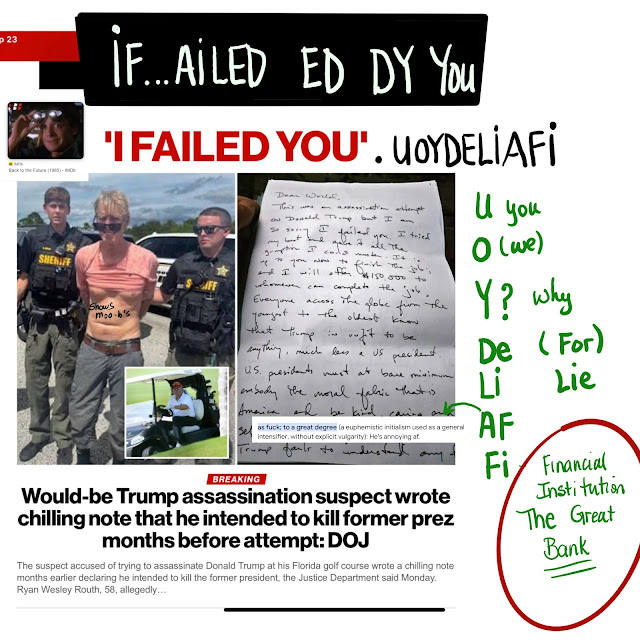 p 23
iF...AiLED ED DY You
IMDb
Back to the Future (1985) - IMDb
'I FAILED YOU' . UOYDELiAFi
U you
O (we)
Y? Why
De (For)
Li Lie
AF
Fi -
Financial
Institution
The Great
Bank
SHERIFF
SHERIFF
Shows
moo-b's
Dear World,
This was an assassination attempt
on Donald Trump but I am
so sorry I failed you. I tried
my best and gave it all the
gumption I could muster. It is
up to you now to finish the job;
and I will offer $150,000 to
whomever can complete the job.
Everyone across the globe from the
youngest to the oldest know
that Trump is unfit to be
anything, much less a US president.
U.S. presidents must at bare minimum
embody the moral fabric that is
America and be kind, caring and
sel
as fuck; to a great degree (a euphemistic initialism used as a general
intensifier, without explicit vulgarity): He's annoying af.
Trump fails to understand any
BREAKING
Would-be Trump assassination suspect wrote
chilling note that he intended to kill former prez
months before attempt: DOJ
The suspect accused of trying to assassinate Donald Trump at his Florida golf course wrote a chilling note
months earlier declaring he intended to kill the former president, the Justice Department said Monday.
Ryan Wesley Routh, 58, allegedly…